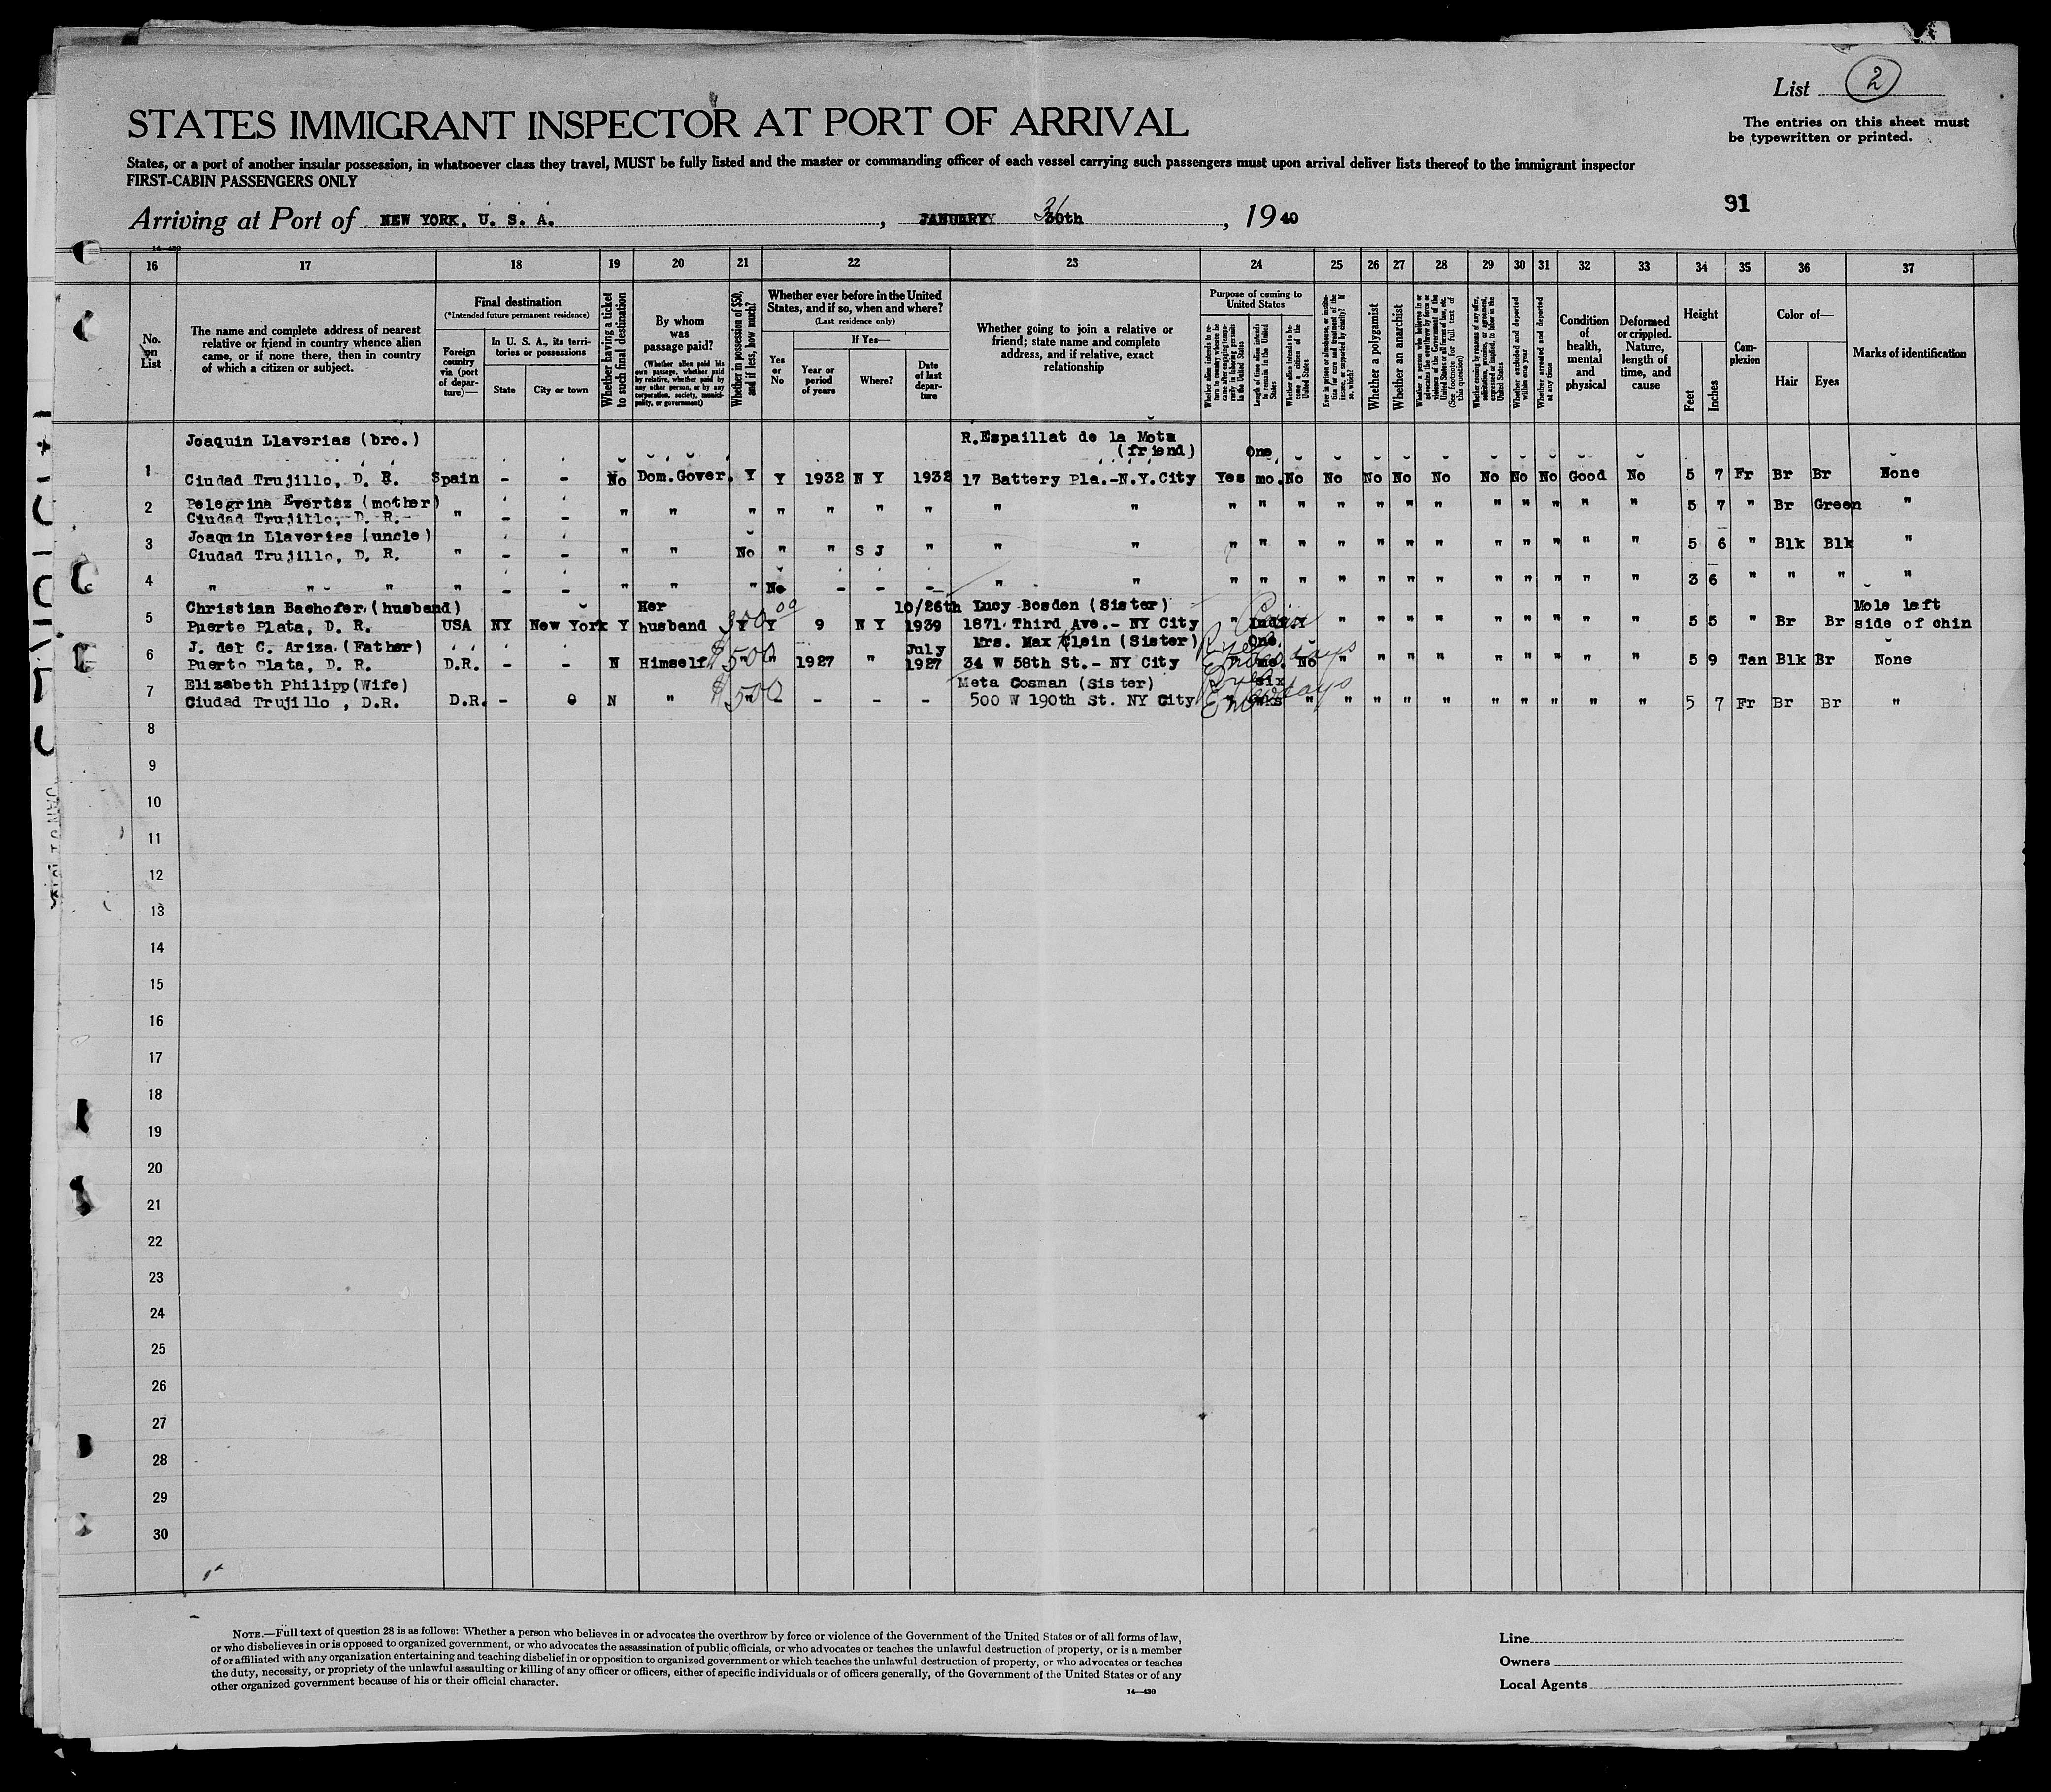 List 2
The entries on this sheet must
be typewritten or printed.
STATES IMMIGRANT INSPECTOR AT PORT OF ARRIVAL
States, or a port of another insular possession, in whatsoever class they travel, MUST be fully listed and the master or commanding officer of each vessel carrying such passengers must upon arrival deliver lists thereof to the immigrant inspector
FIRST-CABIN PASSENGERS ONLY
91
Arriving at Port of NEW YORK, U. S. A. , JANUARY 31 30th , 1940
14—430
16 17 18 19 20 21 22 23 24 25 26 27 28 29 30 31 32 33 34 35 36 37
No. on List
The name and complete address of nearest relative or friend in country whence alien came, or if none there, then in country of which a citizen or subject.
Final destination
(*Intended future permanent residence)
Foreign country via (port of departure)—
In U. S. A., its territories or possessions
State
City or town
Whether having a ticket to such final destination
By whom was passage paid?
(Whether alien paid his own passage, whether paid by relative, whether paid by any other person, or by any corporation, society, municipality, or government)
Whether in possession of $50, and if less, how much?
Whether ever before in the United States, and if so, when and where?
(Last residence only)
Yes or No
If Yes—
Year or period of years
Where?
Date of last departure
Whether going to join a relative or friend; state name and complete address, and if relative, exact relationship
Purpose of coming to United States
Whether alien intends to return to country whence he came after engaging temporarily in laboring pursuits in the United States
Length of time alien intends to remain in the United States
Whether alien intends to become a citizen of the United States
Ever in prison or almshouse, or institution for care and treatment of the insane, or supported by charity? If so, which?
Whether a polygamist
Whether an anarchist
Whether a person who believes in or advocates the overthrow by force or violence of the Government of the United States or all forms of law, etc. (See footnote for full text of this question)
Whether coming by reason of any offer, solicitation, promise, or agreement, expressed or implied, to labor in the United States
Whether excluded and deported within one year
Whether arrested and deported at any time
Condition of health, mental and physical
Deformed or crippled. Nature, length of time, and cause
Height
Feet
Inches
Complexion
Color of—
Hair
Eyes
Marks of identification
Joaquin Llaverias (bro.) R. Espaillat de la Mota
(friend) One
1 Ciudad Trujillo, D. R. Spain - - No Dom.Gover. Y Y 1932 N Y 1932 17 Battery Pla.-N.Y.City Yes mo. No No No No No No No No Good No 5 7 Fr Br Br None
Pelegrina Evertsz (mother)
2 Ciudad Trujillo, D. R. " - - " " " " " " " " " " " " " " " " " " " " " 5 7 " Br Green "
Joaquin Llaverias (uncle)
3 Ciudad Trujillo, D. R. " - - " " No " " S J " " " " " " " " " " " " " " " 5 6 " Blk Blk "
4 " " " " - - " " " No - - - " " " " " " " " " " " " " " 3 6 " " " "
Christian Bachofer (husband) Her 00 10/26th Lucy Bosden (Sister) Mole left
5 Puerto Plata, D. R. USA NY New York Y husband 300 Y Y 9 N Y 1939 1871 Third Ave.- NY City " Indf Y " " " " " " " " " 5 5 " Br Br side of chin
J. del C. Ariza (Father) July Mrs. Max Klein (Sister) One
6 Puerto Plata, D. R. D.R. - - N Himself $500 " " 1927 " 1927 34 W 58th St.- NY City " mo. No " " " " " " " " " 5 9 Tan Blk Br None
Elizabeth Philipp (Wife) Meta Cosman (Sister) six
7 Ciudad Trujillo , D.R. D.R. - 0 N " $500 " - - - - 500 W 190th St. NY City " wks " " " " " " " " " " 5 7 Fr Br Br "
8
9
10
11
12
13
14
15
16
17
18
19
20
21
22
23
24
25
26
27
28
29
30
NOTE.—Full text of question 28 is as follows: Whether a person who believes in or advocates the overthrow by force or violence of the Government of the United States or of all forms of law,
or who disbelieves in or is opposed to organized government, or who advocates the assassination of public officials, or who advocates or teaches the unlawful destruction of property, or is a member
of or affiliated with any organization entertaining and teaching disbelief in or opposition to organized government or which teaches the unlawful destruction of property, or who advocates or teaches
the duty, necessity, or propriety of the unlawful assaulting or killing of any officer or officers, either of specific individuals or of officers generally, of the Government of the United States or of any
other organized government because of his or their official character.
14—430
Line
Owners
Local Agents